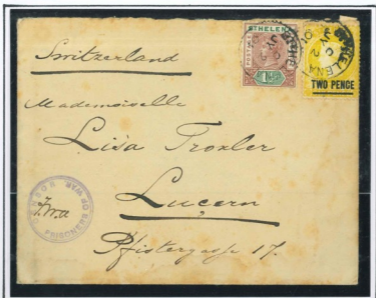 Switzerland
Mademoiselle
Lisa Troxler
Luçern
Pfistergasse 17.
POSTAGE
ST HELENA
TWO PENCE
PRISONERS OF WAR